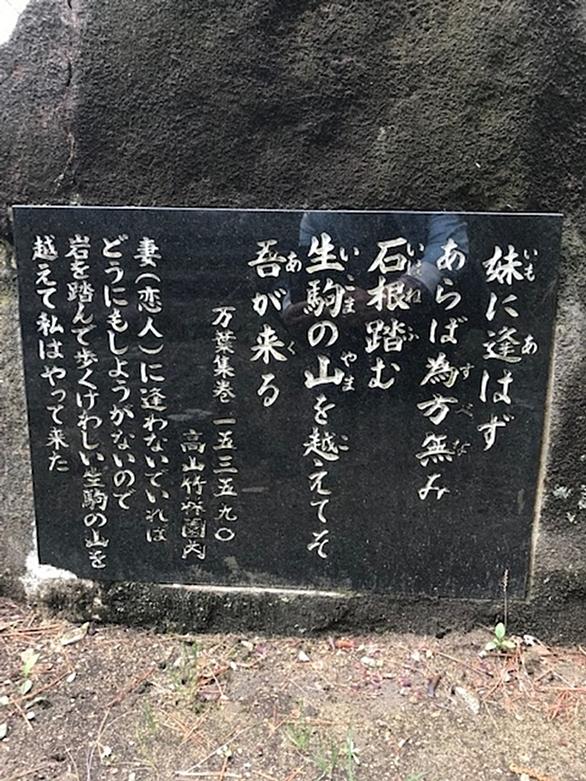 妹に逢はず
あらば為方無み
石根踏む
生駒の山を越えてそ
吾が来る
万葉集巻一五三五九〇
高山竹林園内
妻(恋人)に逢わないでいれば
どうにもしようがないので
岩を踏んで歩くけわしい生駒の山を
越えて私はやって来た